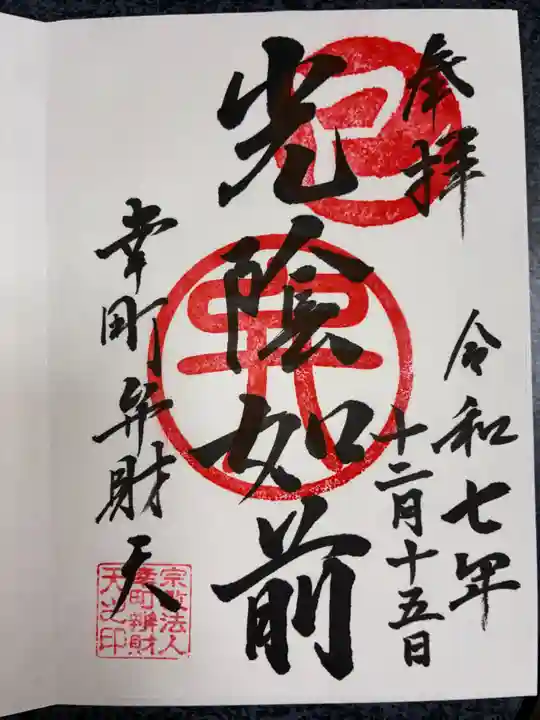 奉拝
令和七年
十二月十五日
光陰如前
幸町弁財天
巳
宗教法人
幸町辨財
天之印